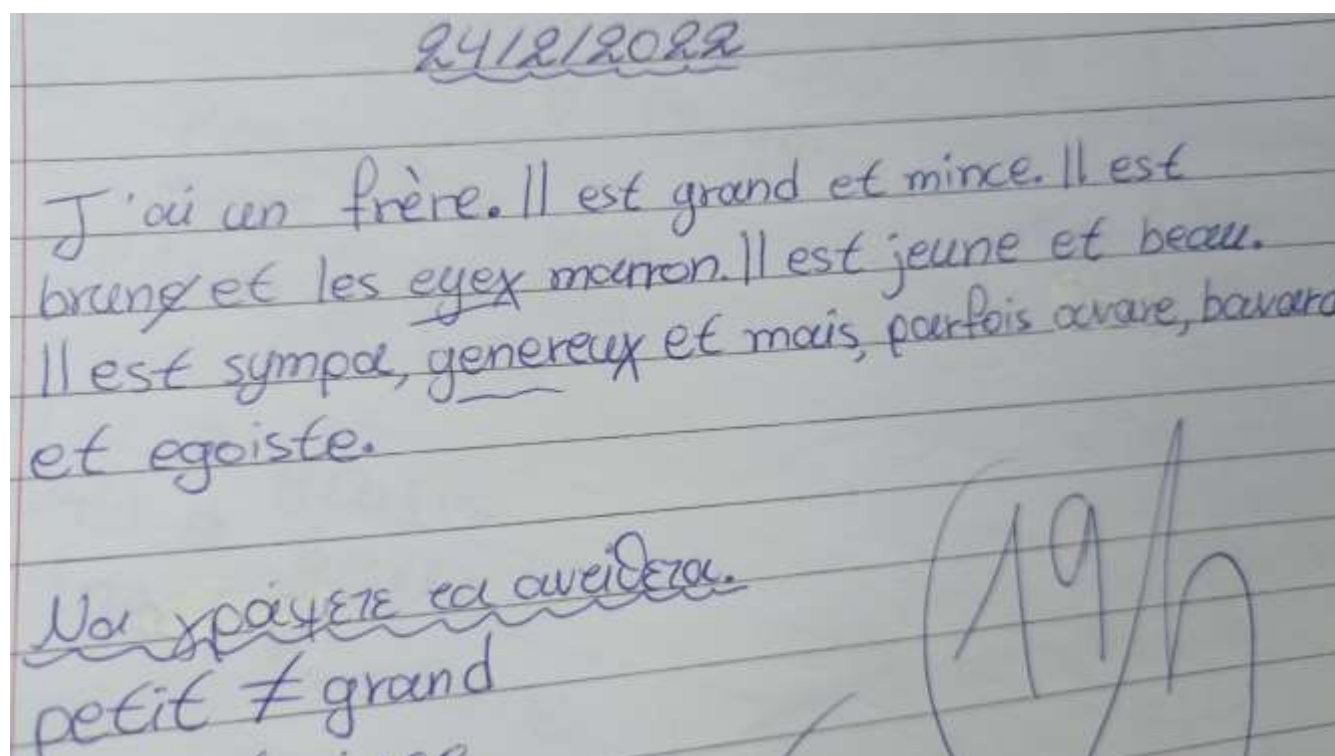 24/2/2022
J'ai un frère. Il est grand et mince. Il est
brune et les eyex marron. Il est jeune et beau.
Il est sympa, genereux et mais, parfois avare, bavard
et egoiste.
Να γράψετε τα αντίθετα.
petit ≠ grand
19